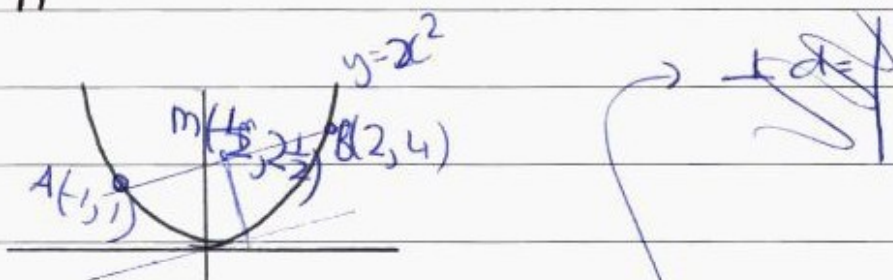 y=x²
M(½, 2½)
B(2, 4)
A(-1, 1)
→ ⊥ d=